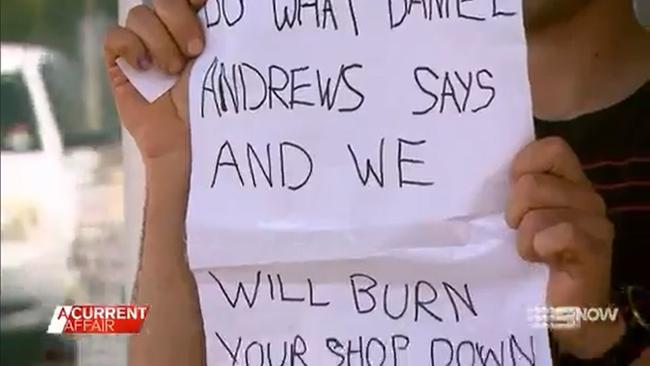 DO WHAT DANIEL
ANDREWS SAYS
AND WE
WILL BURN
YOUR SHOP DOWN
A CURRENT
AFFAIR
9NOW